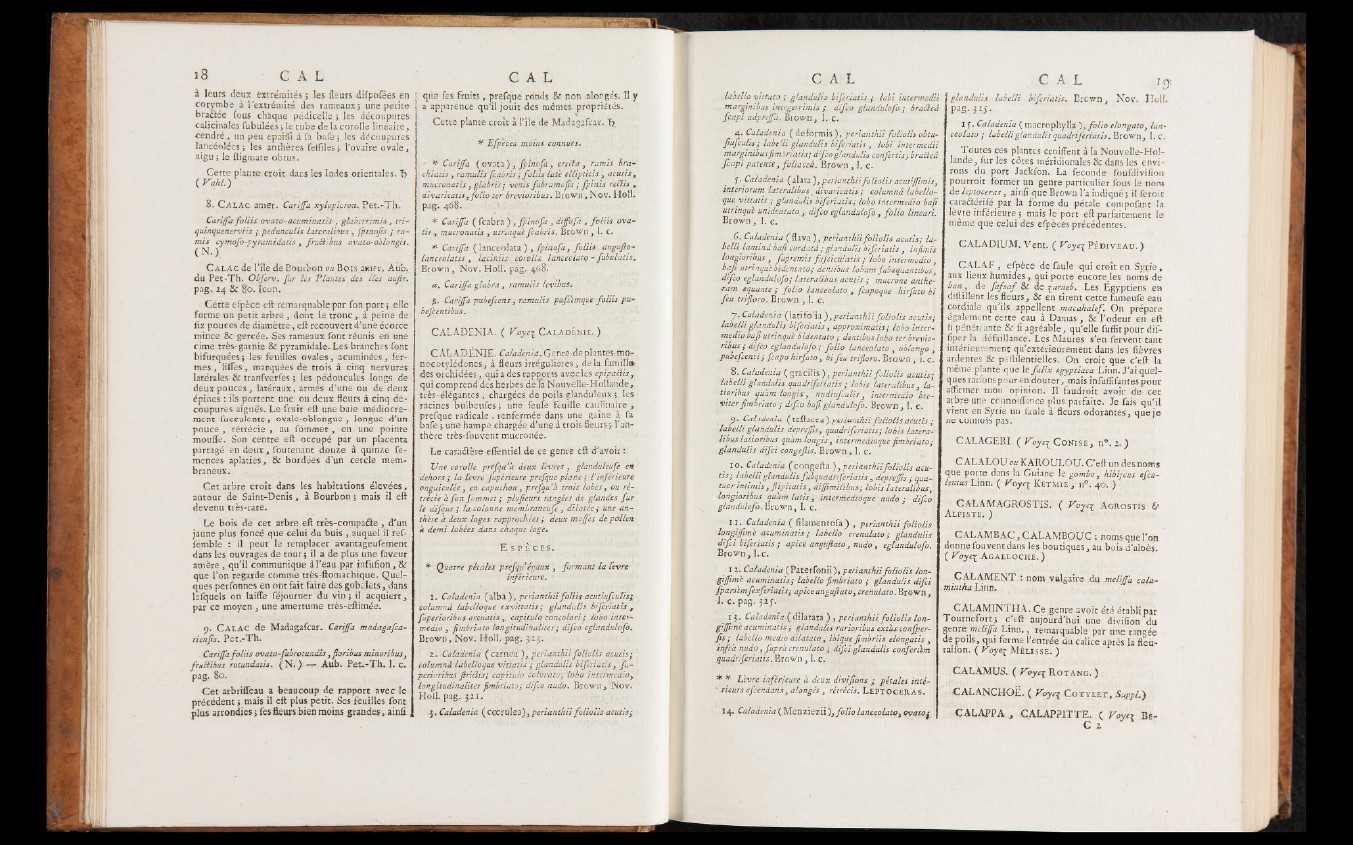 18 C A L
à leurs deux extrémités ; les fleurs diſpoſées en
corymbe à l'extrémité des rameaux ; une petite
bractée ſous chaque pédicelle ; les découpures
calicinales ſubulées ; le tube de la corolle linéaire,
cendré, un peu épaiſſi à ſa baſe ; les découpures
lancéolées ; les anthères ſeſſiles ; l'ovaire ovale,
aigu ; le ſtigmate obtus.
Cette plante croît dans les Indes orientales. ♄
( Vahl. )
8. CALAC amer. Cariſſa xylopicron. Pet.-Th.
Cariſſa foliis ovato-acuminatis, glaberrimis, tri-
quinquenerviis ; pedunculis lateralibus, ſpinoſis ; ra-
mis cymoſo-pyramidatis, fructibus ovato-oblongis.
( N. )
CALAC de l'île de Bourbon ou BOIS amer. Aub.
du Pet-Th. Obſerv. ſur les Plantes des îles auſtr.
pag. 24 & 80. Icon.
Cette eſpèce eſt remarquable par ſon port ; elle
forme un petit arbre, dont le tronc, à peine de
ſix pouces de diamètre, eſt recouvert d'une écorce
mince & gercée. Ses rameaux ſont réunis en une
cime très-garnie & pyramidale. Les branches ſont
bifurquées ; les feuilles ovales, acuminées, fer-
mes, liſſes, marquées de trois à cinq nervures
latérales & tranſverſes ; les pédoncules longs de
deux pouces, latéraux, armés d'une ou de deux
épines : ils portent une ou deux fleurs à cinq dé-
coupures aiguës. Le fruit eſt une baie médiocre-
ment ſucculente, ovale-oblongue, longue d'un
pouce, rétrécie, au ſommet, en une pointe
mouſſe. Son centre eſt occupé par un placenta
partagé en deux, ſoutenant douze à quinze ſe-
mences aplaties, & bordées d'un cercle mem-
braneux.
Cet arbre croît dans les habitations élevées,
autour de Saint-Denis, à Bourbon ; mais il eſt
devenu très-rare.
Le bois de cet arbre eſt très-compacte, d'un
jaune plus foncé que celui du buis, auquel il reſ-
ſemble : il peut le remplacer avantageuſement
dans les ouvrages de tour ; il a de plus une ſaveur
amère, qu'il communique à l'eau par infuſion, &
que l'on regarde comme très-ſtomachique. Quel-
ques perſonnes en ont fait faire des gobelets, dans
leſquels on laiſſe ſéjourner du vin ; il acquiert,
par ce moyen, une amertume très-eſtimée.
9. CALAC de Madagaſcar. Cariſſa madagaſca-
rienſis. Pet.-Th.
Cariſſa foliis ovato-ſubrotundis, floribus minoribus,
fructibus rotundatis. ( N. ) — Aub. Pet.-Th. l. c.
pag. 80.
Cet arbriſſeau a beaucoup de rapport avec le
précédent ; mais il eſt plus petit. Ses feuilles ſont
plus arrondies ; ſes fleurs bien moins grandes, ainſi
C A L
que ſes fruits, preſque ronds & non alongés. Il y
a apparence qu'il jouit des mêmes propriétés.
Cette plante croît à l'île de Madagaſcar. ♄
* Eſpèces moins connues.
* Cariſſa ( ovata ), ſpinoſa, erecta, ramis bra-
chiatis, ramulis ſcabris ; foliis latè ellipticis, acutis,
mucronatis, glabris ; venis ſubramoſis ; ſpinis rectis,
divaricatis, folio ter brevioribus. Brown, Nov. Holl.
pag. 468.
* Cariſſa ( ſcabra ), ſpinoſa, diffuſa, foliis ova-
tis, mucronatis, utrinquè ſcabris. Brown, l. c.
* Cariſſa ( lanceolata ), ſpinoſa, foliis anguſto-
lanceolatis, laciniis corollæ lanceolato - ſubulatis.
Brown, Nov. Holl. pag. 468.
α. Cariſſa glabra, ramulis levibus.
β. Cariſſa pubeſcens, ramulis paſſimque foliis pu-
beſcentibus.
CALADENIA. ( Voyez CALADÉNIE. )
CALADÉNIE. Caladenia. Genre de plantes mo-
nocotylédones, à fleurs irrégulières, de la famille
des orchidées, qui a des rapports avec les epipactis,
qui comprend des herbes de la Nouvelle-Hollande,
très-élégantes, chargées de poils glanduleux ; les
racines bulbeuſes ; une ſeule feuille caulinaire,
preſque radicale, renfermée dans une gaîne à ſa
baſe ; une hampe chargée d'une à trois fleurs ; l'an-
thère très-ſouvent mucronée.
Le caractère eſſentiel de ce genre eſt d'avoir :
Une corolle preſqu'à deux lèvres, glanduleuſe en
dehors ; la lèvre ſupérieure preſque plane ; l'inférieure
onguiculée, en capuchon, preſqu'à trois lobes, ou ré-
trécie à ſon ſommet ; pluſieurs rangées de glandes ſur
le diſque ; la colonne membraneuſe, dilatée ; une an-
thère à deux loges rapprochées ; deux maſſes de pollen
à demi lobées dans chaque loge.
ESPÈCES.
* Quatre pétales preſqu'égaux, formant la lèvre
inférieure.
1. Caladenia ( alba ), perianthii foliis acutiuſculis ;
columnâ labelloque exvittatis ; glandulis biſeriatis,
ſuperioribus arcuatis, capitulo concolori ; lobo inter-
medio, fimbriato longitudinaliter ; diſco eglanduloſo.
Brown, Nov. Holl. pag. 323.
2. Caladenia ( carnea ), perianthii foliolis acutis ;
columnâ labelloque vittatis ; glandulis biſeriatis, ſu-
perioribus ſtrictis ; capitulo colorato ; lobo intermedio,
longitudinaliter fimbriato ; diſco nudo. Brown, Nov.
Holl. pag. 321.
3. Caladenia ( cœrulea ), perianthii foliolis acutis ;
C A L
labello vittato ; glandulis biſeriatis ; lobi intermedii
marginibus integerrimis ; diſco glanduloſo ; bracteâ
ſcapi adpreſſâ. Brown, l. c.
4. Caladenia ( deformis ), perianthii foliolis obtu-
ſiuſculis ; labelli glandulis biſeriatis, lobi intermedii
marginibus fimbriatis ; diſco glandulis confertis ; bracteâ
ſcapi patente, foliaceâ. Brown, l. c.
5. Caladenia ( alata ), perianthii foliolis acutiſſimis,
interiorum lateralibus divaricatis ; columnâ labello-
que vittatis ; glandulis biſeriatis ; lobo intermedio baſi
utrinquè unidentato, diſco eglanduloſo, folio lineari.
Brown, l. c.
6. Caladenia ( flava ), perianthii foliolis acutis ; la-
belli laminâ baſi cordatâ ; glandulis biſeriatis, infimis
longioribus, ſupremis faſciculatis ; lobo intermedio,
baſi utrinquè bidentato ; dentibus lobum ſubæquantibus,
diſco eglanduloſo ; lateralibus acutis ; mucrone anthe-
ram æquante ; folio lanceolato, ſcapoque hirſuto bi
ſeu trifloro. Brown, l. c.
7. Caladenia ( latifolia ), perianthii foliolis acutis ;
labelli glandulis biſeriatis, approximatis ; lobo inter-
medio baſi utrinquè bidentato ; dentibus lobo ter brevio-
ribus ; diſco eglanduloſo ; folio lanceolato, oblongo,
pubeſcenti ; ſcapo hirſuto, bi ſeu trifloro. Brown, l. c.
8. Caladenia ( gracilis ), perianthii foliolis acutis ;
labelli glandulis quadriſeriatis ; lobis lateralibus, la-
tioribus quàm longis, nudiuſculis, intermedio bre-
viter fimbriato ; diſco baſi glanduloſo. Brown, l. c.
9. Caladenia ( teſtacea ) perianthii foliolis acutis ;
labelli glandulis depreſſis, quadriſeriatis ; lobis latera-
libus latioribus quàm longis, intermedioque fimbriato ;
glandulis diſci congeſtis. Brown, l. c.
10. Caladenia ( congeſta ), perianthii foliolis acu-
tis ; labelli glandulis ſubquadriſeriatis, depreſſis ; qua-
tuor intimis, ſtipitatis, diſſimilibus ; lobis lateralibus,
longioribus quàm latis, intermedioque nudo ; diſco
glanduloſo. Brown, l. c.
11. Caladenia ( filamentoſa ), perianthii foliolis
longiſſimè acuminatis ; labello crenulato ; glandulis
diſci biſeriatis ; apice anguſtato, nudo, eglanduloſo.
Brown, l. c.
12. Caladenia ( Paterſonii ), perianthii foliolis lon-
giſſimè acuminatis ; labello fimbriato ; glandulis diſci
ſparſim ſexſeriatis ; apice anguſtato, crenulato. Brown,
l. c. pag. 325.
13. Caladenia ( dilatata ), perianthii foliolis lon-
giſſimè acuminatis ; glandulis rarioribus extùs conſper-
ſis ; labello medio dilatato, ibique fimbriis elongatis,
infrà nudo, ſuprà crenulato ; diſci glandulis confertim
quadriſeriatis. Brown, l. c.
* * Lèvre inférieure à deux diviſions ; pétales inté-
rieurs aſcendans, alongés, rétrécis. LEPTOCERAS.
14. Caladenia ( Menziezii ), folio lanceolato, ovato ;
C A L 19
glandulis labelli biſeriatis. Brown, Nov. Holl.
pag. 325.
15. Caladenia ( macrophylla ), folio elongato, lan-
ceolato ; labelli glandulis quadriſeriatis. Brown, l. c.
Toutes ces plantes croiſſent à la Nouvelle-Hol-
lande, ſur les côtes méridionales & dans les envi-
rons du port Jackſon. La ſeconde ſoudiviſion
pourroit former un genre particulier ſous le nom
de leptoceras, ainſi que Brown l'a indiqué ; il ſeroit
caractériſé par la forme du pétale compoſant la
lèvre inférieure ; mais le port eſt parfaitement le
même que celui des eſpèces précédentes.
CALADIUM. Vent. ( Voyez PÉDIVEAU. )
CALAF, eſpèce de ſaule qui croît en Syrie,
aux lieux humides, qui porte encore les noms de
ban, de ſafſaf & de zarneb. Les Égyptiens en
diſtillent les fleurs, & en tirent cette fameuſe eau
cordiale qu'ils appellent macahalef. On prépare
également cette eau à Damas, & l'odeur en eſt
ſi pénétrante & ſi agréable, qu'elle ſuffit pour diſ-
ſiper la défaillance. Les Maures s'en ſervent tant
intérieurement qu'extérieurement dans les fièvres
ardentes & peſtilentielles. On croit que c'eſt la
même plante que le ſalix ægyptiaca Linn. J'ai quel-
ques raiſons pour en douter, mais inſuffiſantes pour
affirmer mon opinion. Il faudroit avoir de cet
arbre une connoiſſance plus parfaite. Je ſais qu'il
vient en Syrie un ſaule à fleurs odorantes, que je
ne connois pas.
CALAGERI. ( Voyez CONISE, n°. 2. )
CALALOU ou KAROULOU. C'eſt un des noms
que porte dans la Guiane le gombo, hibiſcus eſcu-
lentus Linn. ( Voyez KETMIE, n°. 40. )
CALAMAGROSTIS. ( Voyez AGROSTIS &
ALPISTE. )
CALAMBAC, CALAMBOUC : noms que l'on
donne ſouvent dans les boutiques, au bois d'aloès.
( Voyez AGALLOCHE. )
CALAMENT : nom vulgaire du meliſſa cala-
mintha Linn.
CALAMINTHA. Ce genre avoit été établi par
Tournefort ; c'eſt aujourd'hui une diviſion du
genre meliſſa Linn., remarquable par une rangée
de poils, qui ferme l'entrée du calice après la fleu-
raiſon. ( Voyez MÉLISSE. )
CALAMUS. ( Voyez ROTANG. )
CALANCHOË. ( Voyez COTYLET, Suppl. )
CALAPPA, CALAPPITTE. ( Voyez BE-
C 2